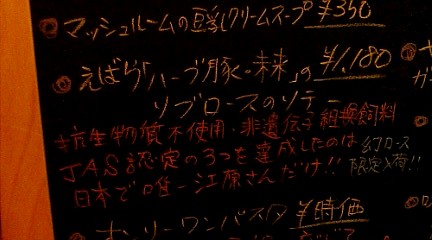 マッシュルームの豆乳クリームスープ ¥350
えばら「ハーブ豚・未来」の ¥1,180
リブロースのソテー
抗生物質不使用・非遺伝子組換飼料
JAS認定の3つを達成したのは
日本で唯一江原さんだけ!!
幻ロース
限定入荷!!
オンリーワンパスタ ¥時価